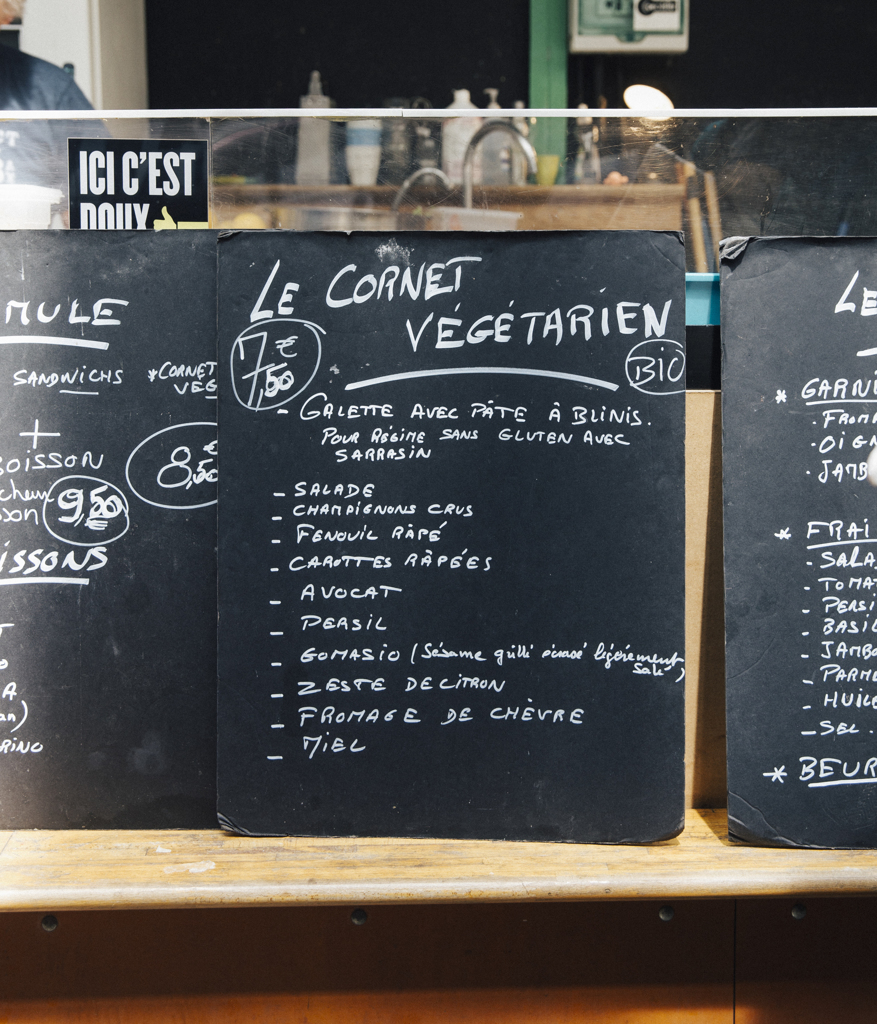 ICI C'EST
DOUX
MULE
SANDWICHS
*CORNET
VEG
+
BOISSON
8,50€
9,50€
ISSONS
LE CORNET
VÉGÉTARIEN
7,50€
BIO
- GALETTE AVEC PÂTE À BLINIS.
POUR RÉGIME SANS GLUTEN AVEC
SARRASIN
- SALADE
- CHAMPIGNONS CRUS
- FENOUIL RÂPÉ
- CAROTTES RÂPÉES
- AVOCAT
- PERSIL
- GOMASIO (Sésame grillé écrasé légèrement
salé)
- ZESTE DE CITRON
- FROMAGE DE CHÈVRE
- MIEL
LE
* GARNI
· FROMA
· OIGN
· JAMB
* FRAI
- SALA
- TOMAT
- PERSI
- BASIL
- JAMBO
- PARME
- HUILE
- SEL.
* BEUR